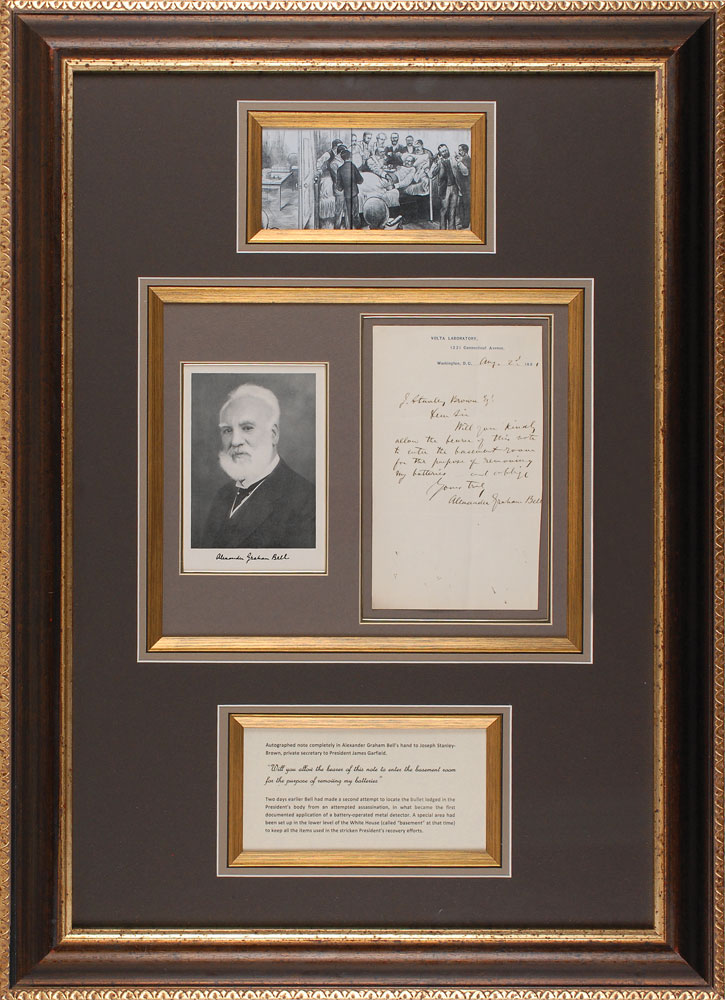 VOLTA LABORATORY,
1221 Connecticut Avenue.
Washington, D.C. Aug. 2d 1881
J. Stanley Brown Esq.
Dear Sir
Will you kindly
allow the bearer of this note
to enter the basement rooms
for the purpose of removing
my batteries and oblige
Yours truly
Alexander Graham Bell
Alexander Graham Bell
Autographed note completely in Alexander Graham Bell's hand to Joseph Stanley-
Brown, private secretary to President James Garfield.
"Will you allow the bearer of this note to enter the basement room
for the purpose of removing my batteries"
Two days earlier Bell had made a second attempt to locate the bullet lodged in the
President's body from an attempted assassination, in what became the first
documented application of a battery-operated metal detector. A special area had
been set up in the lower level of the White House (called "basement" at that time)
to keep all the items used in the stricken President's recovery efforts.